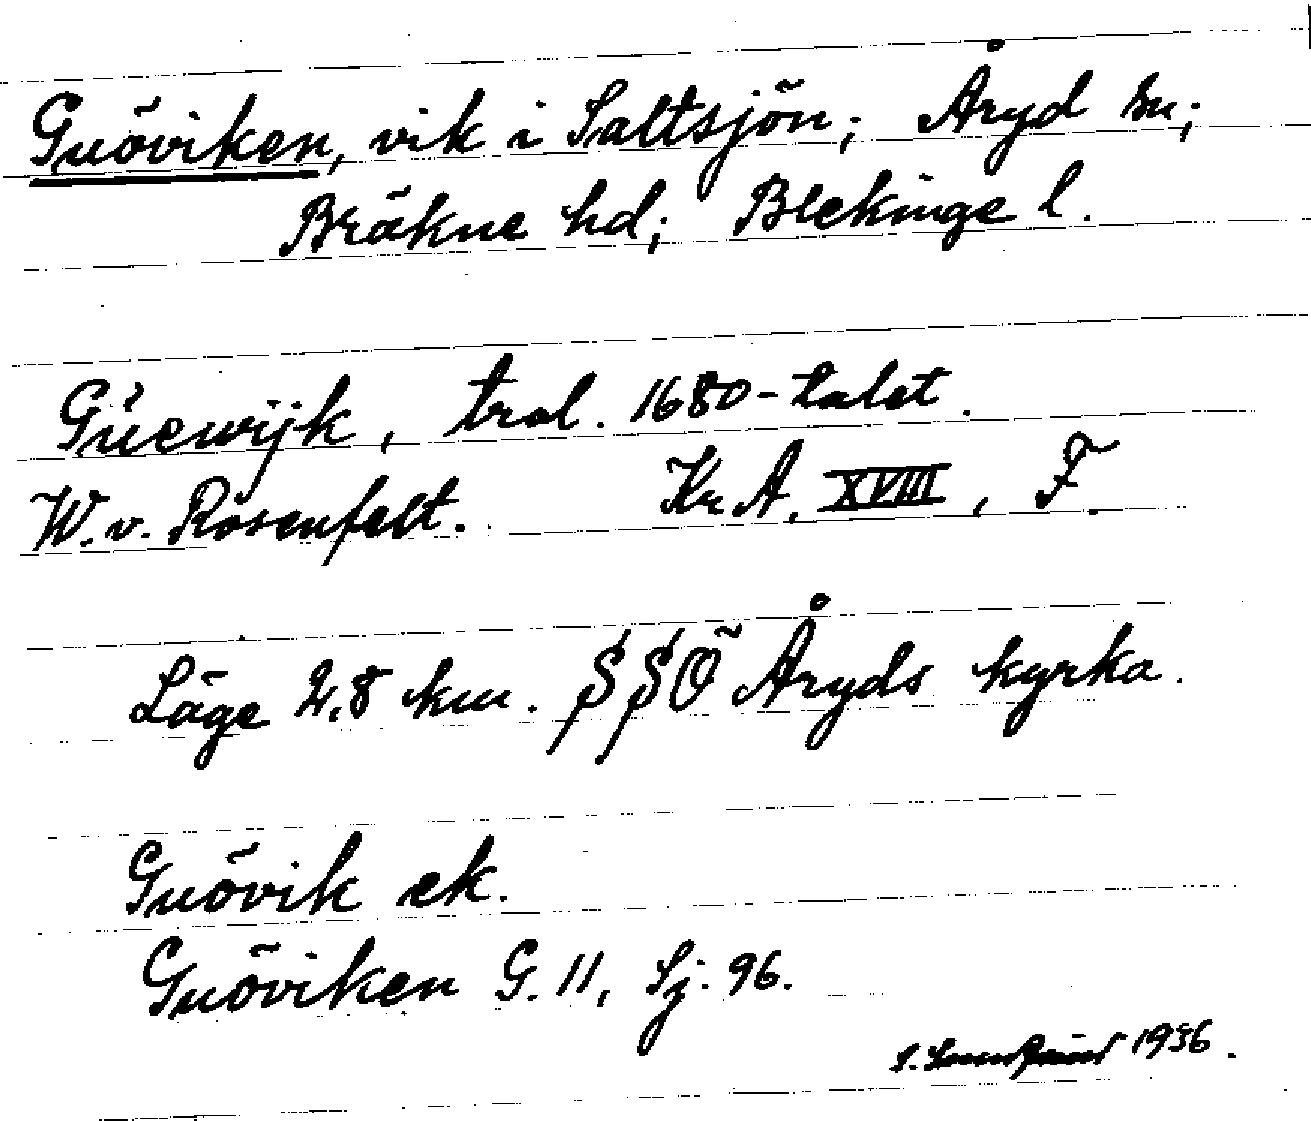 Gnöviken, vik i Saltsjön; Åryd sn;
Bräkne hd; Blekinge l.
Gnewijk, trol. 1680-talet.
W. v. Rosenfelt. Kr A. XVIII, F.
Läge 2,8 km. SSÖ Åryds kyrka.
Gnövik ek.
Gnöviken G. 11, Sj. 96.
1936.